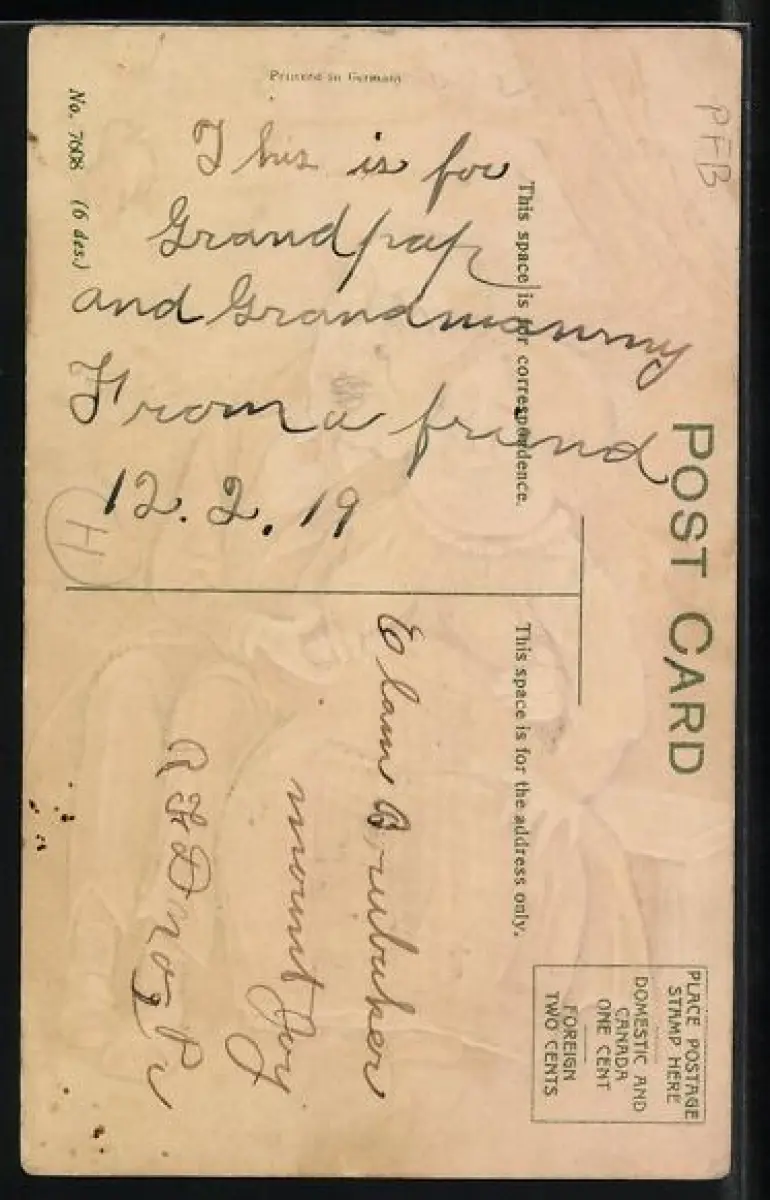 Printed in Germany
No. 7608 (6 des.)
PFB
This is for
Grandpap
and Grandmammy
From a friend
12.2.19
H
This space is for correspondence.
POST CARD
This space is for the address only.
Elam Brubaker
mount Joy
R F D no Pa
PLACE POSTAGE
STAMP HERE
DOMESTIC AND
CANADA
ONE CENT
FOREIGN
TWO CENTS